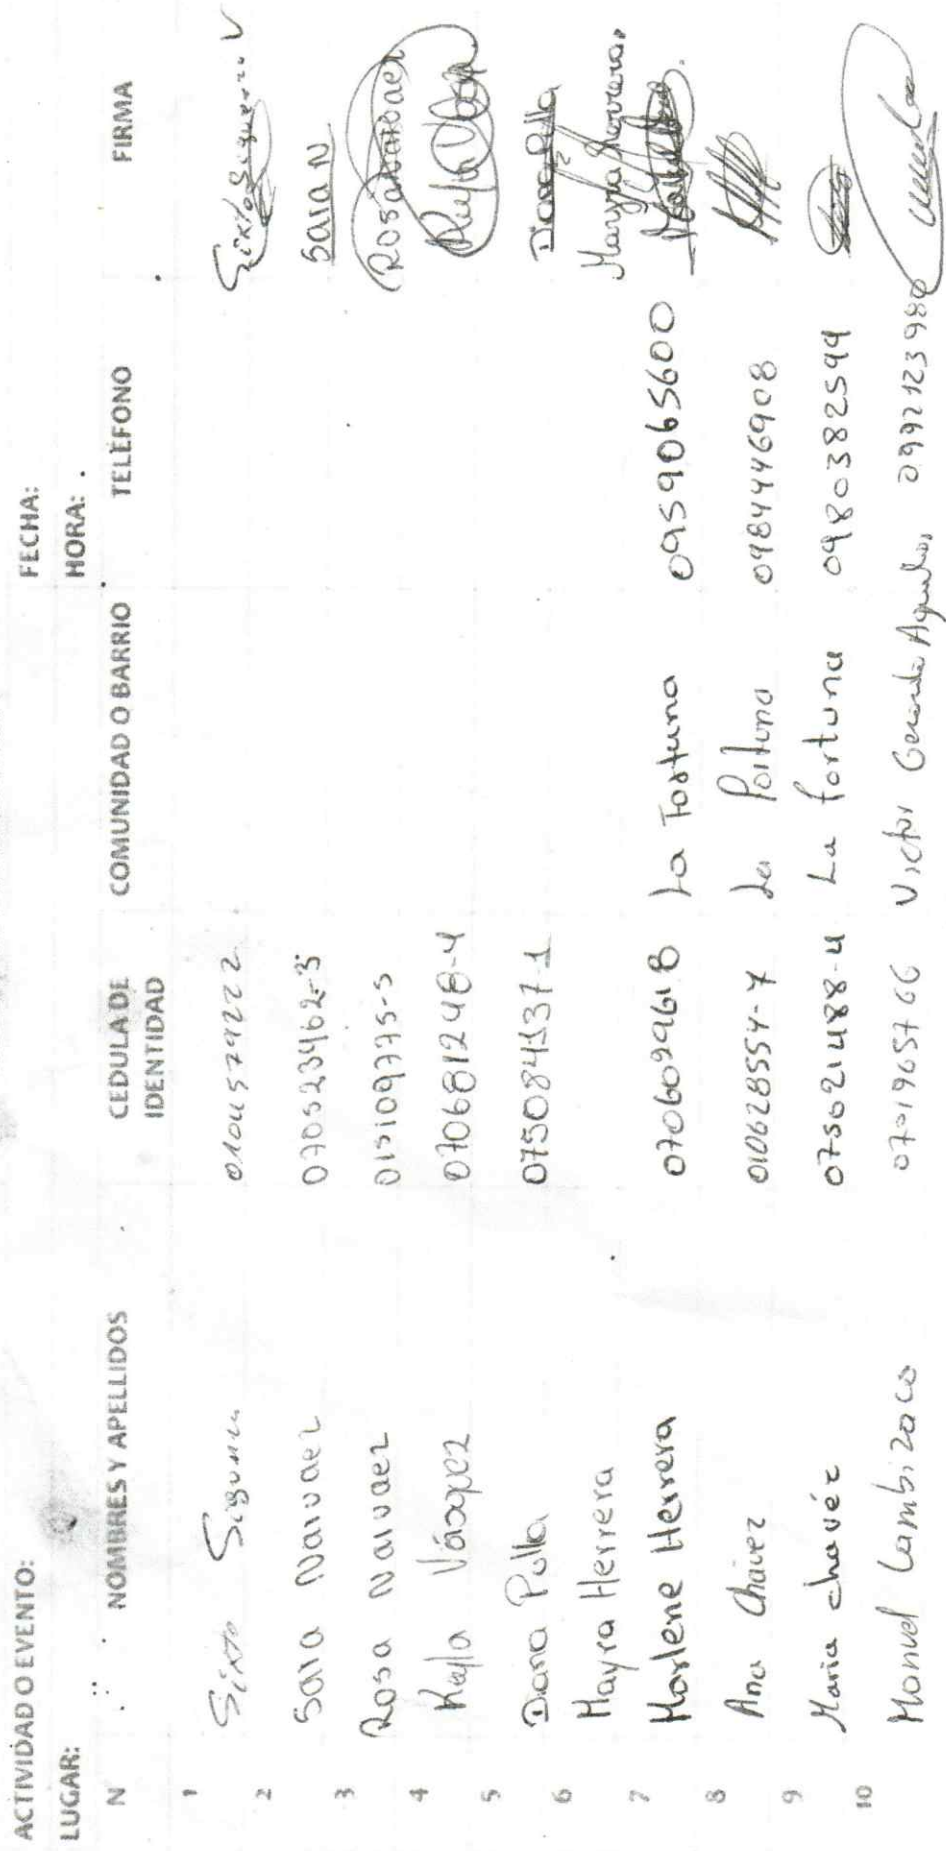 ACTIVIDAD O EVENTO: FECHA:
LUGAR: HORA:
N NOMBRES Y APELLIDOS CEDULA DE IDENTIDAD COMUNIDAD O BARRIO TELÉFONO FIRMA
1 Sixto
2 Sara Narvaez 070523462-3 Sara N
3 Rosa Narvaez Rosa Narvaez
4 Keyla Vásquez 070681248-4
5 Diana Pulla 075084137-1 Diana Pulla
6 Mayra Herrera Mayra Herrera
7 Marlene Herrera 070609961 8 La Fortuna 0959065600
8 Ana Chávez 010628554-7 La Fortuna 0984446908
9 Maria chavéz La fortuna 0980382594
10 Manuel Lambizaco 0701965766 Victor 099212398